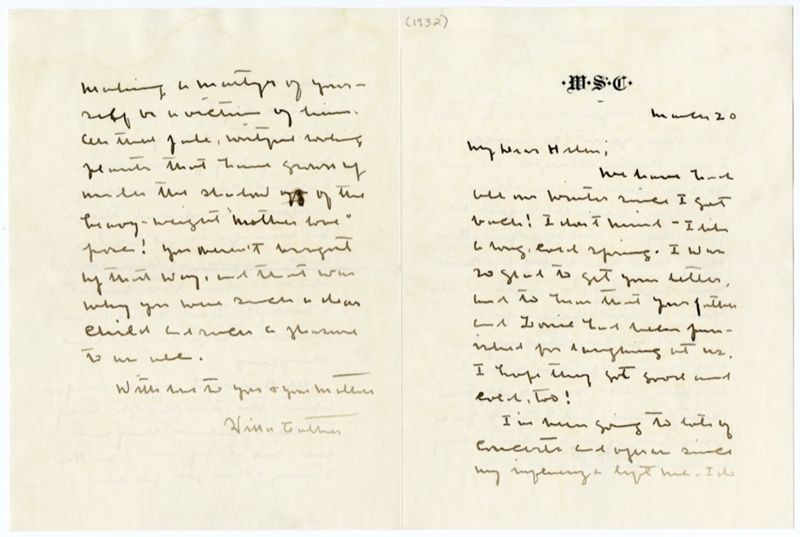 (1932)
·W·S·C·
March 20
My Dear Helen;
We have had
all our winter since I got
back! I don't mind - I like
a long, cold spring. I was
so glad to get your letter,
and to hear that your father
and had been pun-
ished for laughing at us.
I hope they got good and
cold, too!
I've been going to lots of
concerts and operas since
my influenza left me. I do
making a martyr of your-
self or a victim of him.
All those pale, wistful looking
plants that have grown up
under the shadow of the
heavy-weight "Mother love"
pose! You weren't brought
up that way, and that was
why you were such a dear
child and such a pleasure
to us all.
With love to you & your mother
Willa Cather